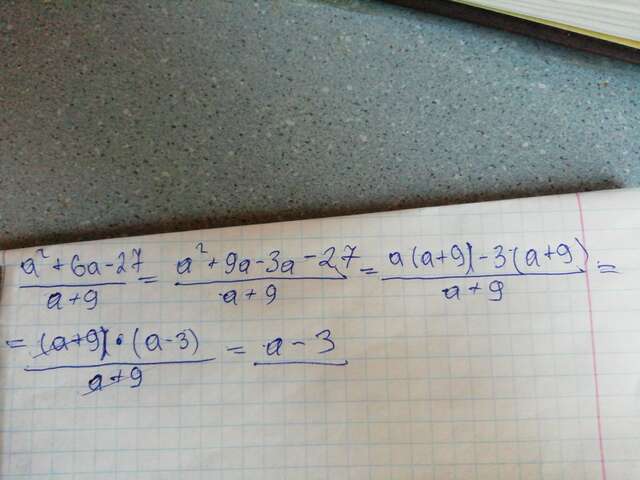 (a² + 6a - 27)/(a + 9) = (a² + 9a - 3a - 27)/(a + 9) = (a(a+9) - 3·(a+9))/(a + 9) =
= ((a+9)·(a-3))/(a+9) = a - 3